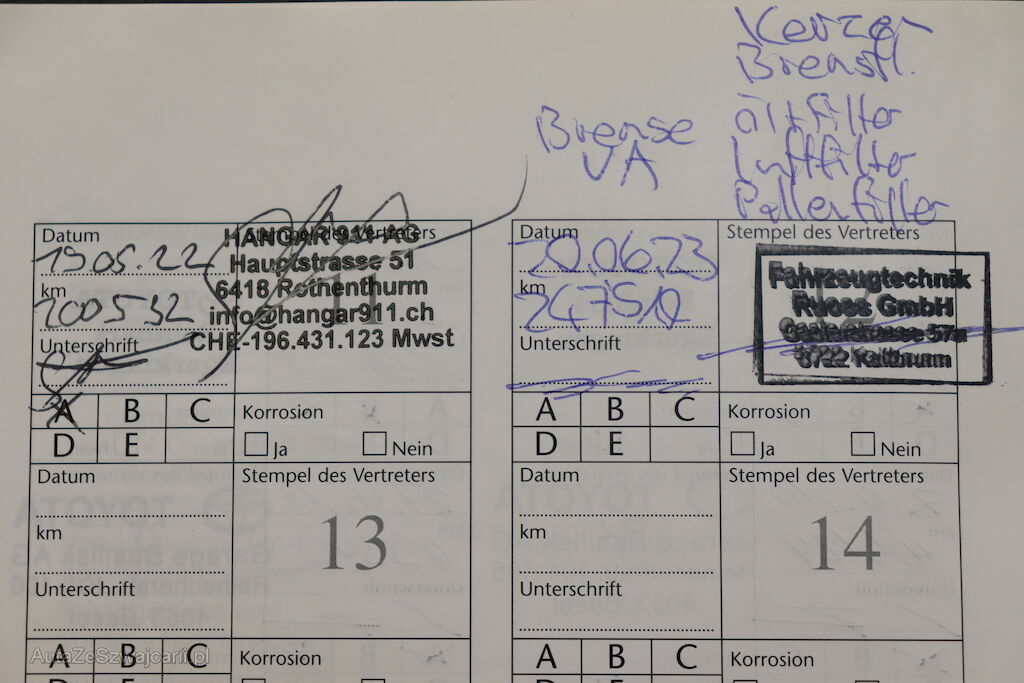 Kerzen
Bremsfl.
Ölfilter
Luftfilter
Pollenfilter
Bremse
VA
Datum
19.05.22
km
200532
Unterschrift
Stempel des Vertreters
11
HANGAR 911 AG
Hauptstrasse 51
6418 Rothenthurm
info@hangar911.ch
CHE-196.431.123 Mwst
A B C
D E
Korrosion
Ja Nein
Datum
20.06.23
km
Unterschrift
Stempel des Vertreters
Fahrzeugtechnik
Ruoss GmbH
57a
8722 Kaltbrunn
A B C
D E
Korrosion
Ja Nein
Datum
km
Unterschrift
Stempel des Vertreters
13
A B C
Korrosion
Datum
km
Unterschrift
Stempel des Vertreters
14
A B C
Korrosion
TOYOTA
Garage Basilisk AG
4053 Basel
AutaZeSzwajcarii.pl